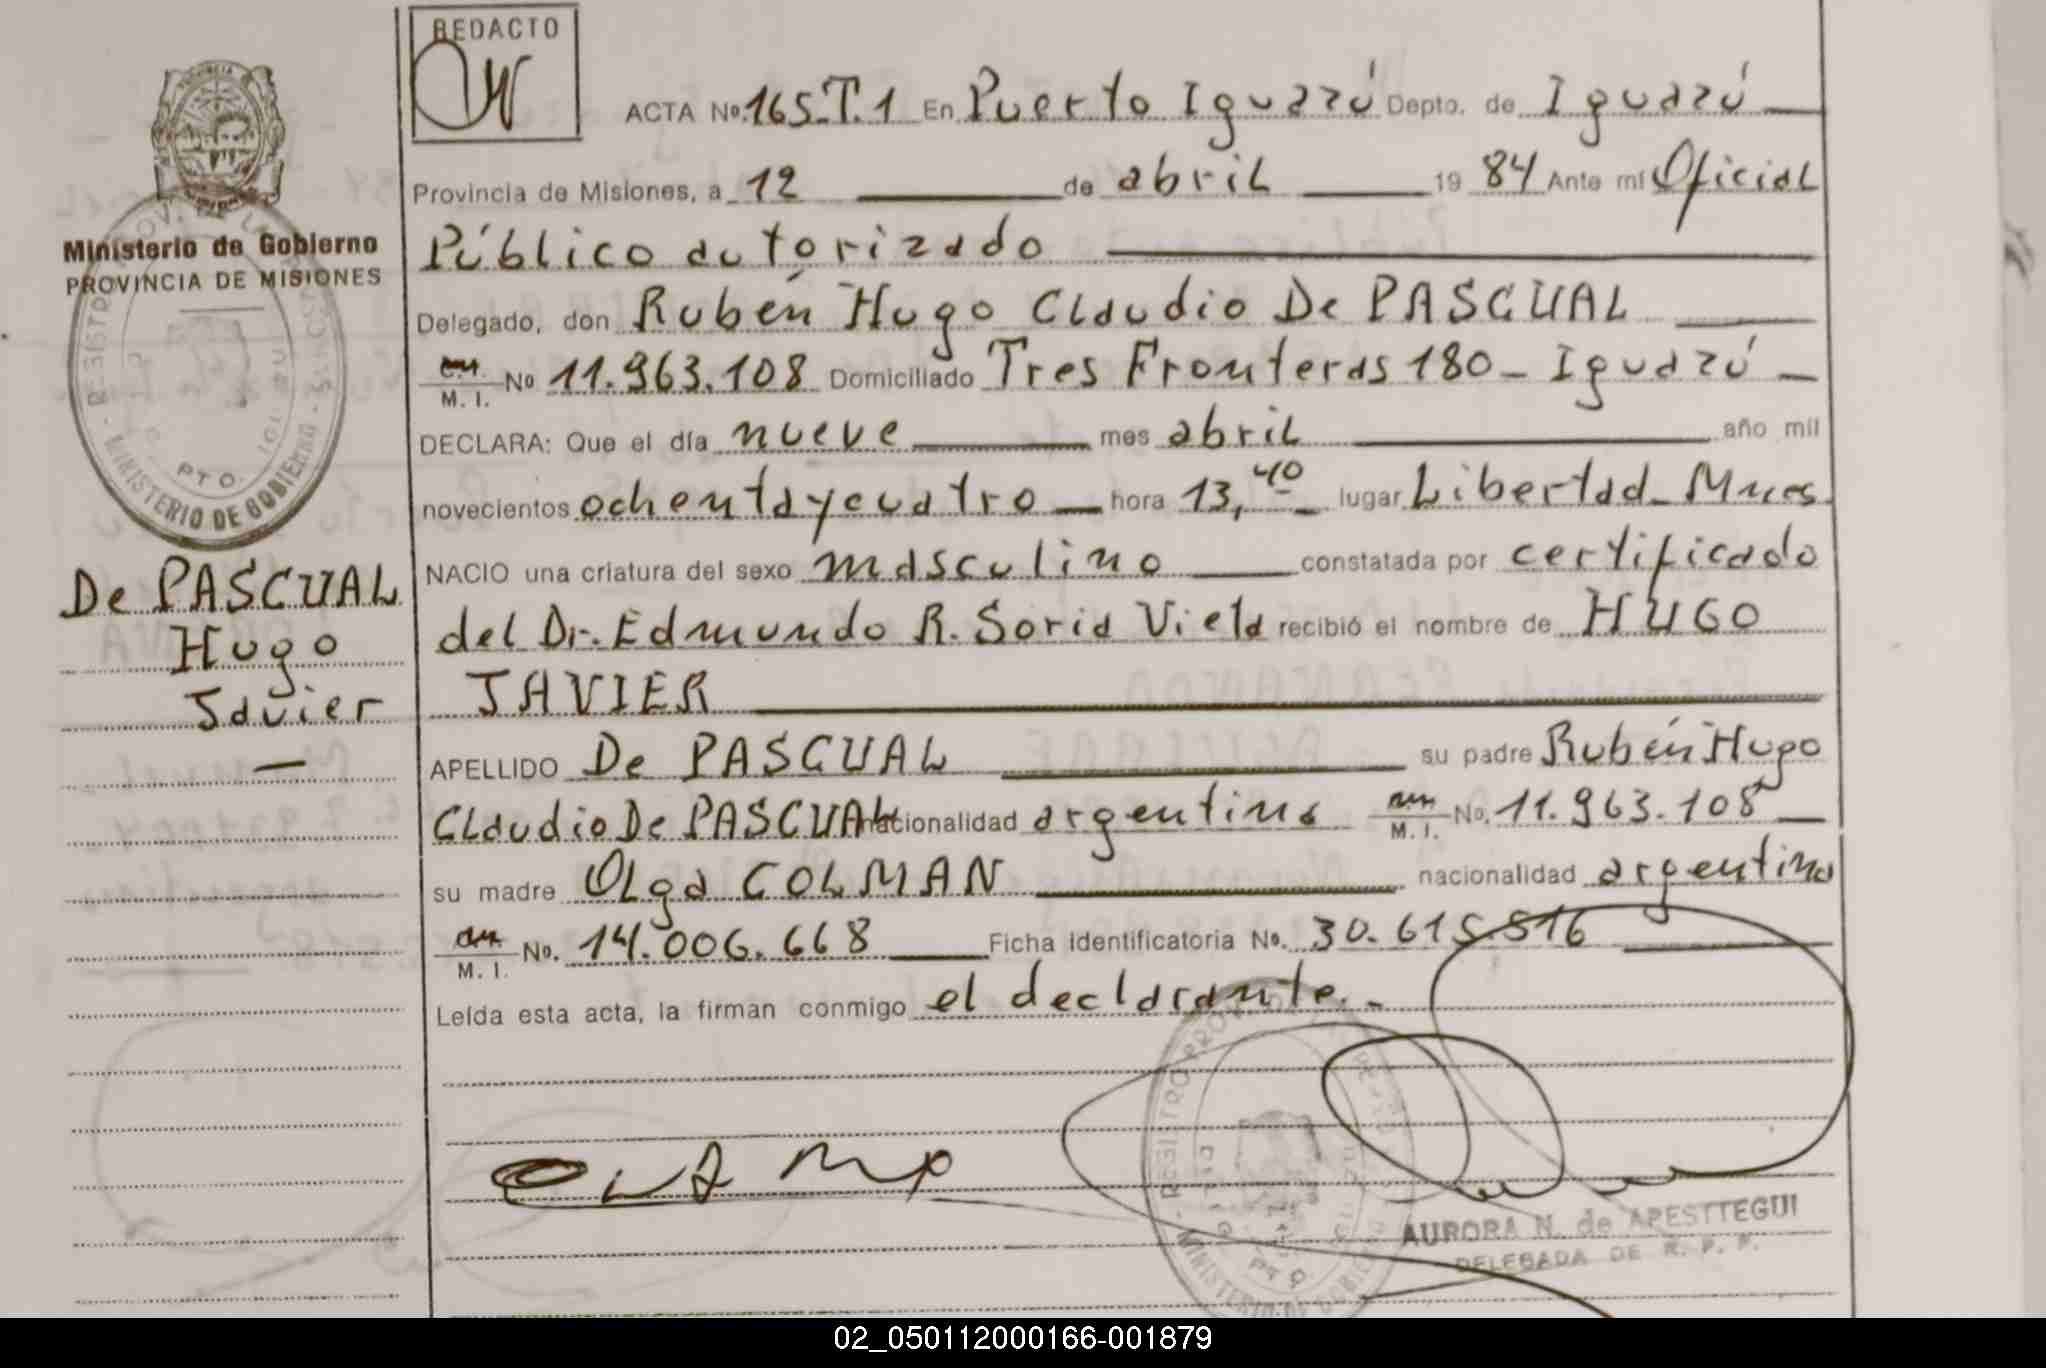 REDACTO
ACTA Nº 165.T.1 En Puerto Iguazú Depto. de Iguazú
Provincia de Misiones, a 12 de abril 19 84 Ante mí Oficial
Público autorizado
Delegado, don Rubén Hugo Claudio De PASCUAL
M. I. No 11.963.108 Domiciliado Tres Fronteras 180 - Iguazú
DECLARA: Que el día nueve mes abril año mil
novecientos ochentaycuatro hora 13,40 lugar Libertad - Mnes
NACIO una criatura del sexo masculino constatada por certificado
del Dr. Edmundo R. Soria Viela recibió el nombre de HUGO
JAVIER
APELLIDO De PASCUAL su padre Rubén Hugo
Claudio De PASCUAL nacionalidad argentina M. I. No. 11.963.108
su madre Olga COLMAN nacionalidad argentina
M. I. No. 14.006.668 Ficha identificatoria No. 30.615.516
Leída esta acta, la firman conmigo el declarante.-
Ministerio de Gobierno
PROVINCIA DE MISIONES
REGISTRO PROV.
MINISTERIO DE GOBIERNO
PTO.
De PASCUAL
Hugo
Javier
REGISTRO PROV
MINISTERIO DE GOBIE
PTO
AURORA N. de APESTTEGUI
DELEGADA DE R. P. P.
02_050112000166-001879